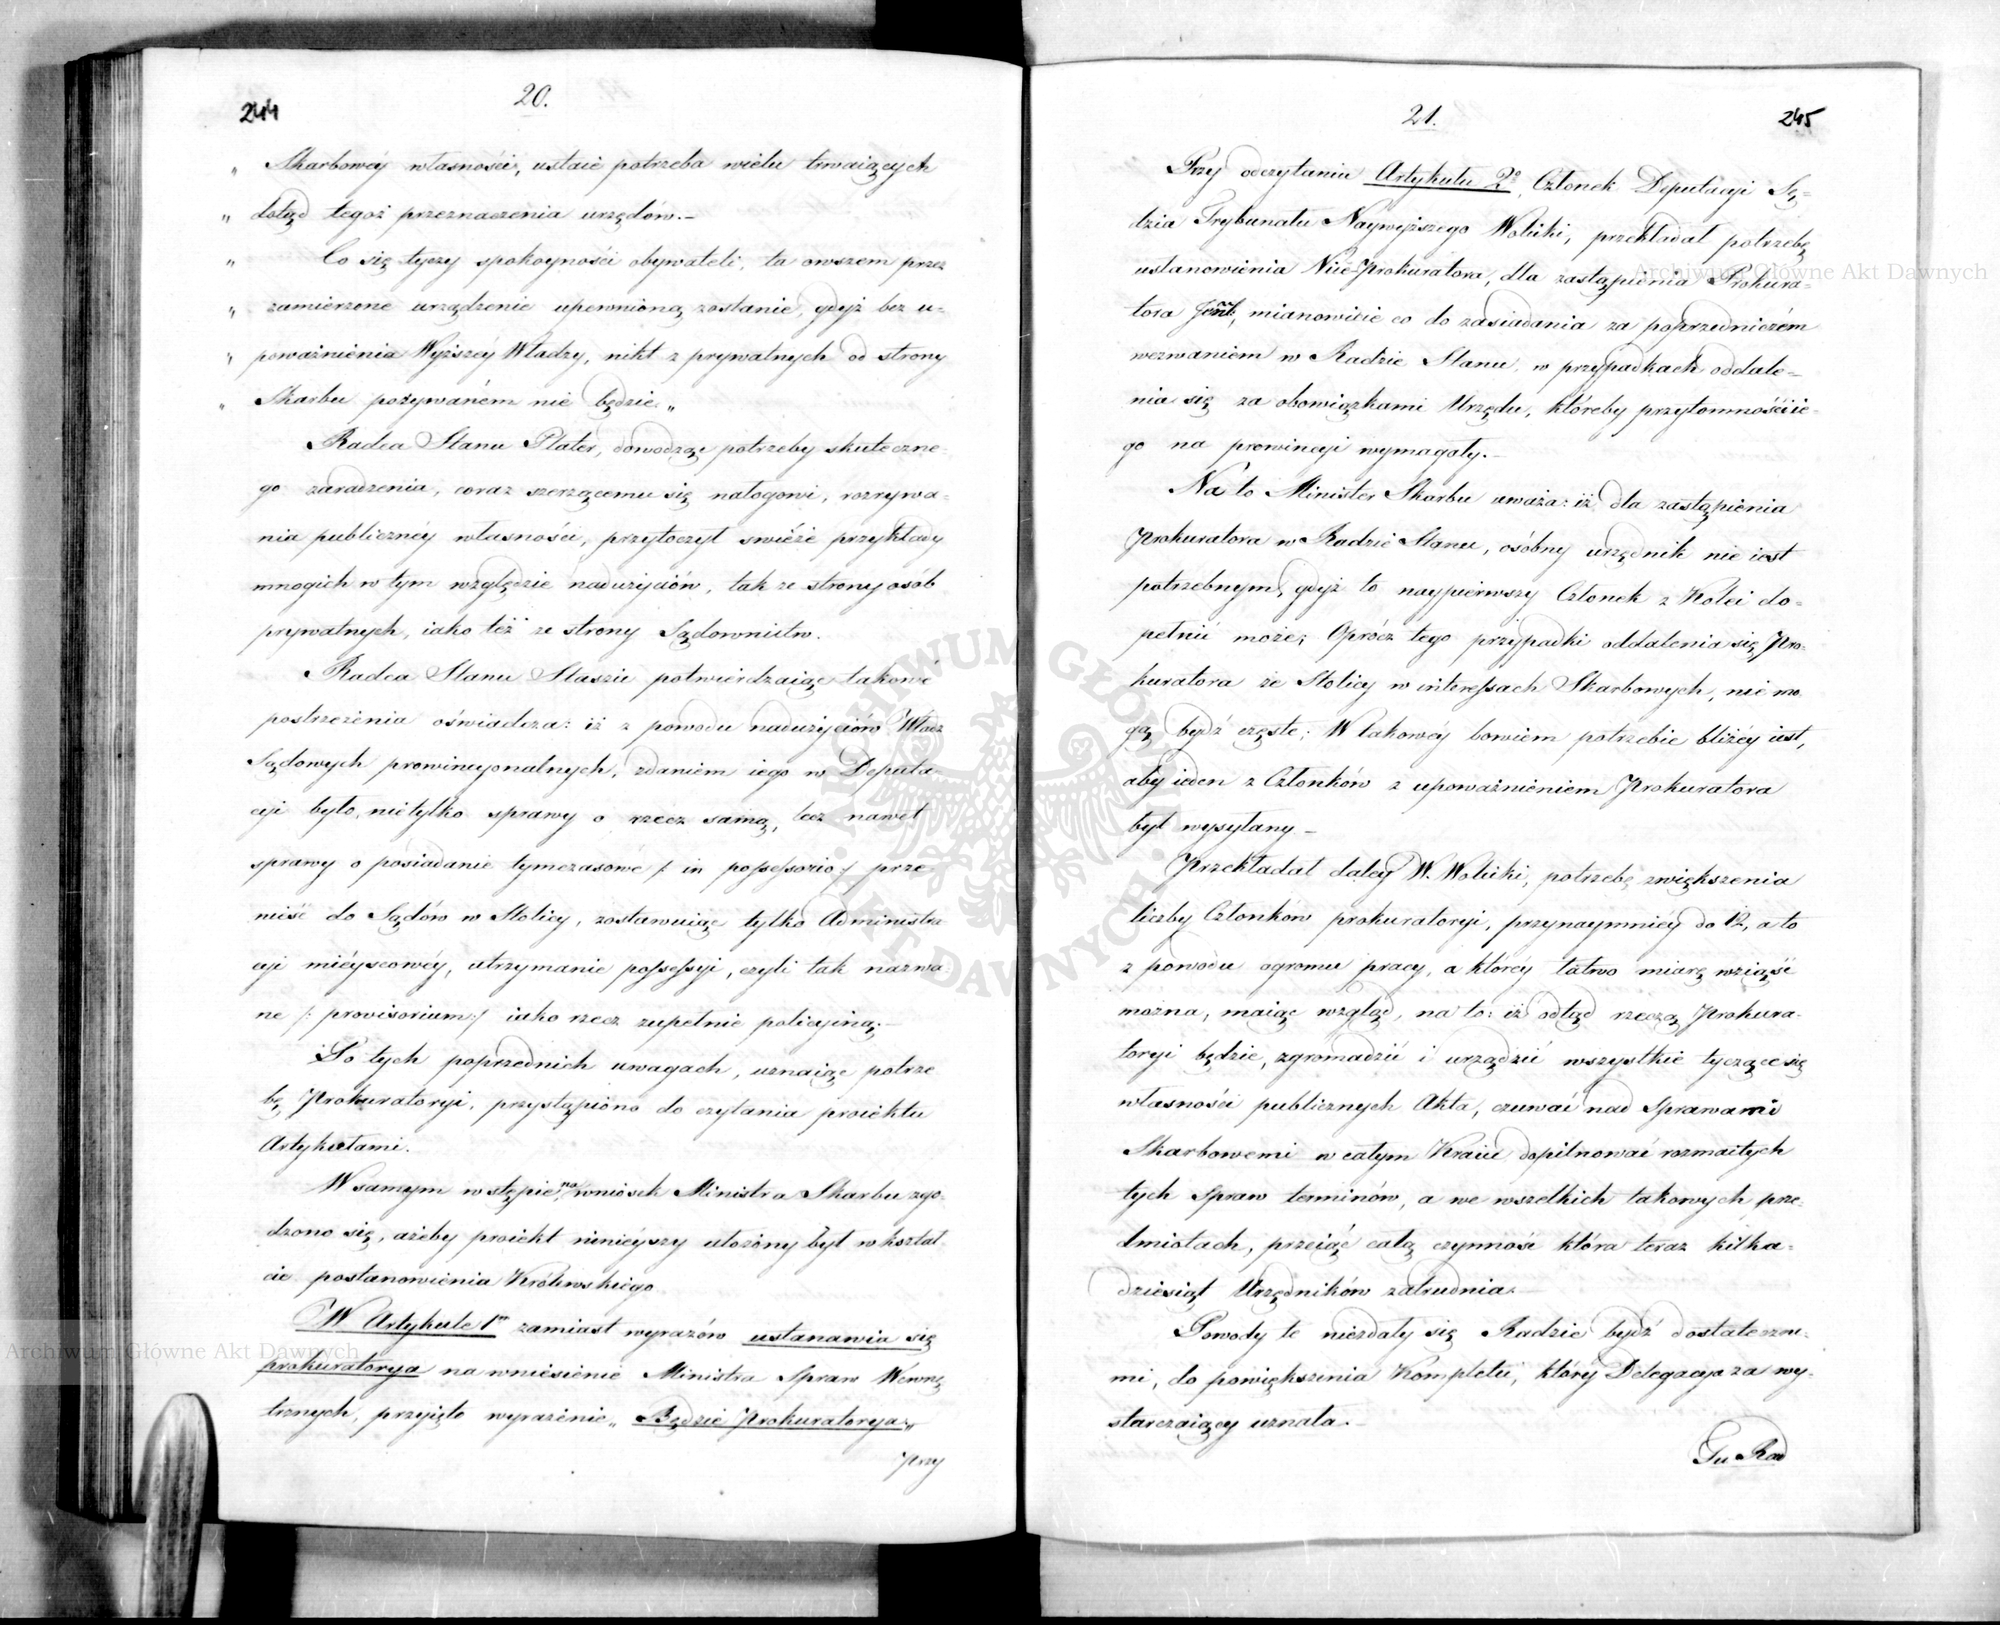 244
20.
„ Skarbowéy własności, ustaie potrzeba wielu trwaiących
„ dotąd tegoż przeznaczenia urzędów.–
„ Co się tyczy spokoyności obywateli, ta owszem przez
„ zamierzone urządzenie upewnioną zostanie, gdyż bez u-
„ poważnienia Wyższéy Władzy, nikt z prywatnych od strony
„ Skarbu pozywaném nie będzie„
Radca Stanu Plater, dowodząc potrzeby skuteczne-
go zaradzenia, coraz szerzącemu się nałogowi, rozrywa-
nia publicznéy własności, przytoczył swiéże przykłady
mnogich w tym względzie nadużyciów, tak ze strony osób
prywatnych, iako téż ze strony Sądownictw.
Radca Stanu Staszic potwierdzaiąc takowé
postrzeżenia oświadcza: iż z powodu nadużyciów Władz
Sądowych prowincyonalnych, zdaniem iego w Deputa-
cyi było, nietylko sprawy o rzecz samą, lecz nawet
sprawy o posiadanie tymczasowé /: in possessorio :/ prze-
nieść do Sądów w Stolicy, zostawuiąc tylko Administra-
cyi miéyscowéy, utrzymanie possessyi, czyli tak nazwa-
ne /: provisorium :/ iako rzecz zupełnie policyiną.–
Po tych poprzednich uwagach, uznaiąc potrze-
bę Prokuratoryi, przystąpiono do czytania proiektu
Artykułami.
W samym wstępie, na wniosek Ministra Skarbu zgo-
dzono się, ażeby proiekt ninieyszy ułożony był w kształ-
cie postanowienia Królewskiego.
W Artykule 1m zamiast wyrazów ustanawia się
prokuratorya na wniesienie Ministra Spraw Wewnę-
trznych, przyięto wyrażenie „ Będzie Prokuratorya„
Przy
21.
245
Przy odczytaniu Artykułu 2o, Członek Deputacyi Sę-
dzia Trybunału Naywyższego Wolicki, przekładał potrzebę
ustanowienia Vice-Prokuratora, dla zastąpienia Prokura-
tora Jsnł, mianowicie co do zasiadania za poprzedniczém
wezwaniem w Radzie Stanu, w przypadkach oddale-
nia się za obowiązkami Urzędu, któreby przytomności ie-
go na prowincyi wymagały.–
Na to Minister Skarbu uważa: iż dla zastąpienia
Prokuratora w Radzie Stanu, osóbny urzędnik nie iest
potrzebnym, gdyż to naypierwszy Członek z Kolei do-
pełnić może; Oprócz tego przypadki oddalenia się Pro-
kuratora ze Stolicy w interessach Skarbowych, nie mo-
gą bydź częste; W takowéy bowiem potrzebie bliżéy iest,
aby ieden z Członków z upoważnieniem Prokuratora
był wysyłany –
Przekładał daley W. Wolicki, potrzebę zwiększenia
liczby Członków prokuratoryi, przynaymniey do 12, a to
z powodu ogromu pracy, a któréy łatwo miarę wziąść
można, maiąc wzgląd, na to: iż odtąd rzeczą Prokura-
toryi będzie, zgromadzić i urządzić wszystkie tyczące się
własności publicznych Akta, czuwać nad Sprawami
Skarbowemi w całym Kraiu dopilnować rozmaitych
tych Spraw terminów, a we wszelkich takowych prze-
dmiotach, przeiąć całą czynność która teraz kilka-
dziesiąt Urzędników zatrudnia.
Powody te niezdały się Radzie bydź dostateczne-
mi, do powiększenia Kompletu, który Delegacya za wy-
starczaiący uznała.–
Tu Rad
Archiwum Główne Akt Dawnych
Archiwum Główne Akt Dawnych
ARCHIWUM GŁÓWNE AKT DAWNYCH